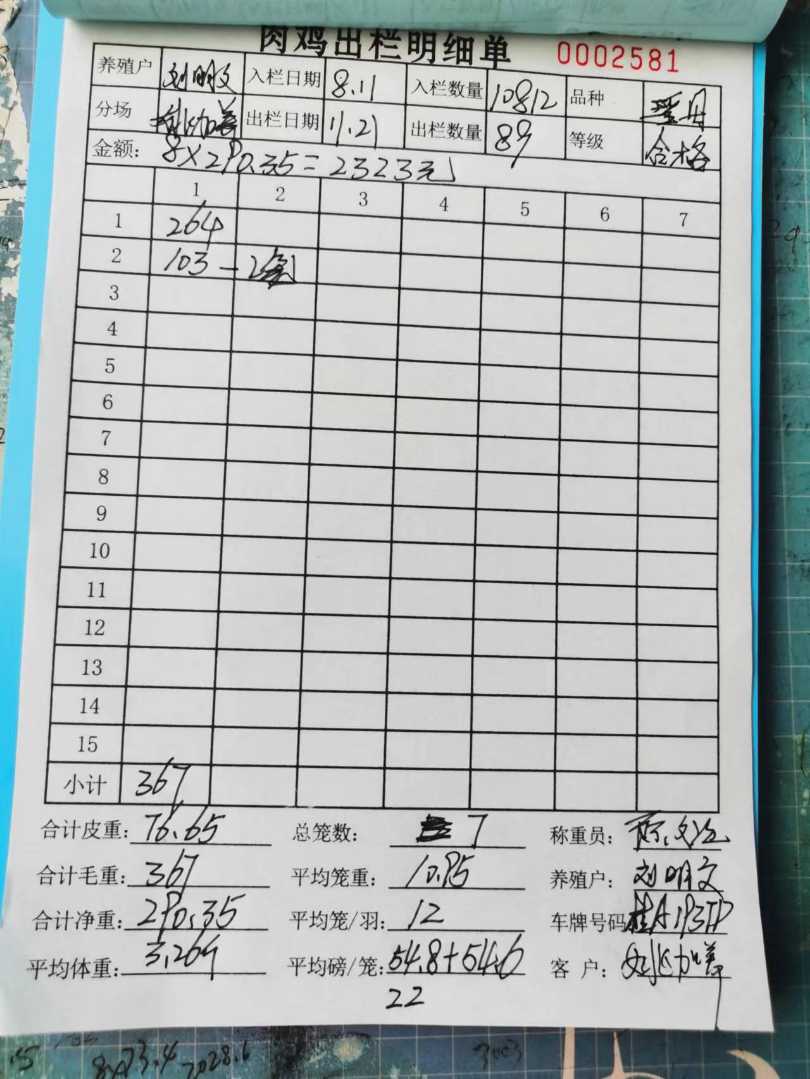 肉鸡出栏明细单 0002581
养殖户 刘明文 入栏日期 8.11 入栏数量 10812 品种
分场 出栏日期 11.21 出栏数量 89 等级 合格
金额: 8×290.35=2323元
1 2 3 4 5 6 7
1 264
2 103
3
4
5
6
7
8
9
10
11
12
13
14
15
小计 367
合计皮重: 76.65 总笼数: 7 称重员:
合计毛重: 367 平均笼重: 10.95 养殖户: 刘明文
合计净重: 290.35 平均笼/羽: 12 车牌号码
平均体重: 3.264 平均磅/笼: 54.8+54.6 客 户:
22
8×73.4 2028.6